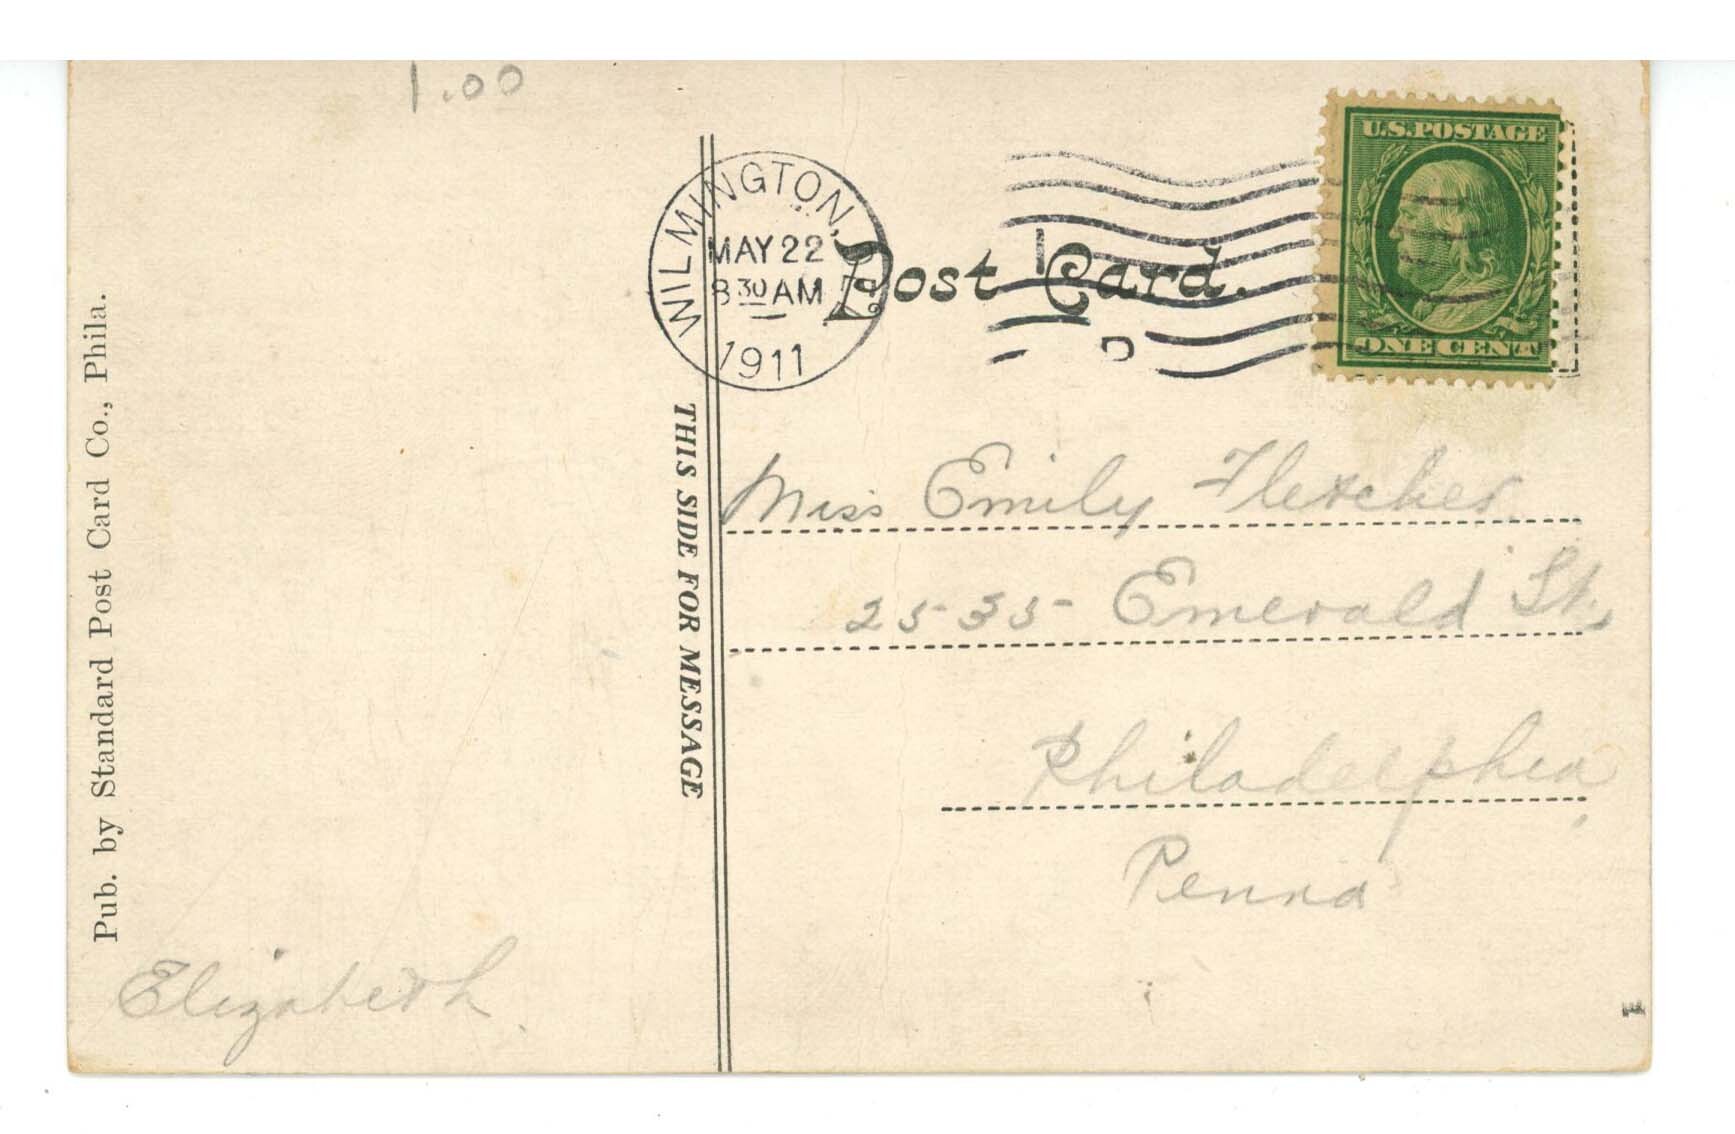 1.00
U.S. POSTAGE
ONE CENT
WILMINGTON,
MAY 22
8 30 AM
1911
Post Card.
THIS SIDE FOR MESSAGE
Pub. by Standard Post Card Co., Phila.
Miss Emily Fletcher
2535 Emerald St.,
Philadelphia,
Penna
Elizabeth.